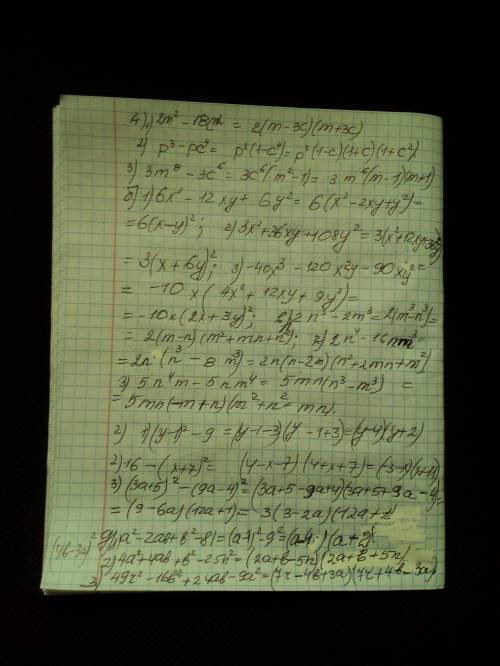 а) 1) 2m² - 18c² = 2(m-3c)(m+3c)
2) p³ - pc⁴ = p³(1-c⁴) = p³(1-c)(1+c)(1+c²)
3) 3m⁸ - 3c⁶ = 3c⁶(m²-1) = 3m⁶(m-1)(m+1)
б) 1) 6x² - 12xy + 6y² = 6(x² - 2xy + y²) =
= 6(x-y)²; 2) 3x² + 36xy + 108y² = 3(x² + 12xy + 36y²)
= 3(x + 6y)²; 3) -40x³ - 120x²y - 90xy² =
= -10x(4x² + 12xy + 9y²) =
= -10x(2x + 3y)²; в) 2n³ - 2m³ = 2(m³-n³) =
= 2(m-n)(m² + mn + n²); 2) 2n⁴ - 16nm³ =
= 2n(n³ - 8m³) = 2n(n-2m)(n² + 2mn + m²)
3) 5n⁴m - 5nm⁴ = 5mn(n³ - m³) =
= 5mn(-m+n)(m² + n² + mn).
г) 1) (y-1)² - 9 = (y-1-3)(y-1+3) = (y-4)(y+2)
2) 16 - (x+7)² = (4-x-7)(4+x+7) = (-3-x)(x+11)
3) (3a+5)² - (9a-4)² = (3a+5-9a+4)(3a+5+9a-4) =
= (9-6a)(12a+1) = 3(3-2a)(12a+1)
д) 1) a² - 2ab + b² - 81 = (a-b)² - 9² =
2) 4a² + 4ab + b² - 25n² = (2a+b-5n)(2a+b+5n)
(4b-3a)²
3) 49r² - 16b² + 24ab - 9a² = (7r-4b+3a)(7r+4b-3a)